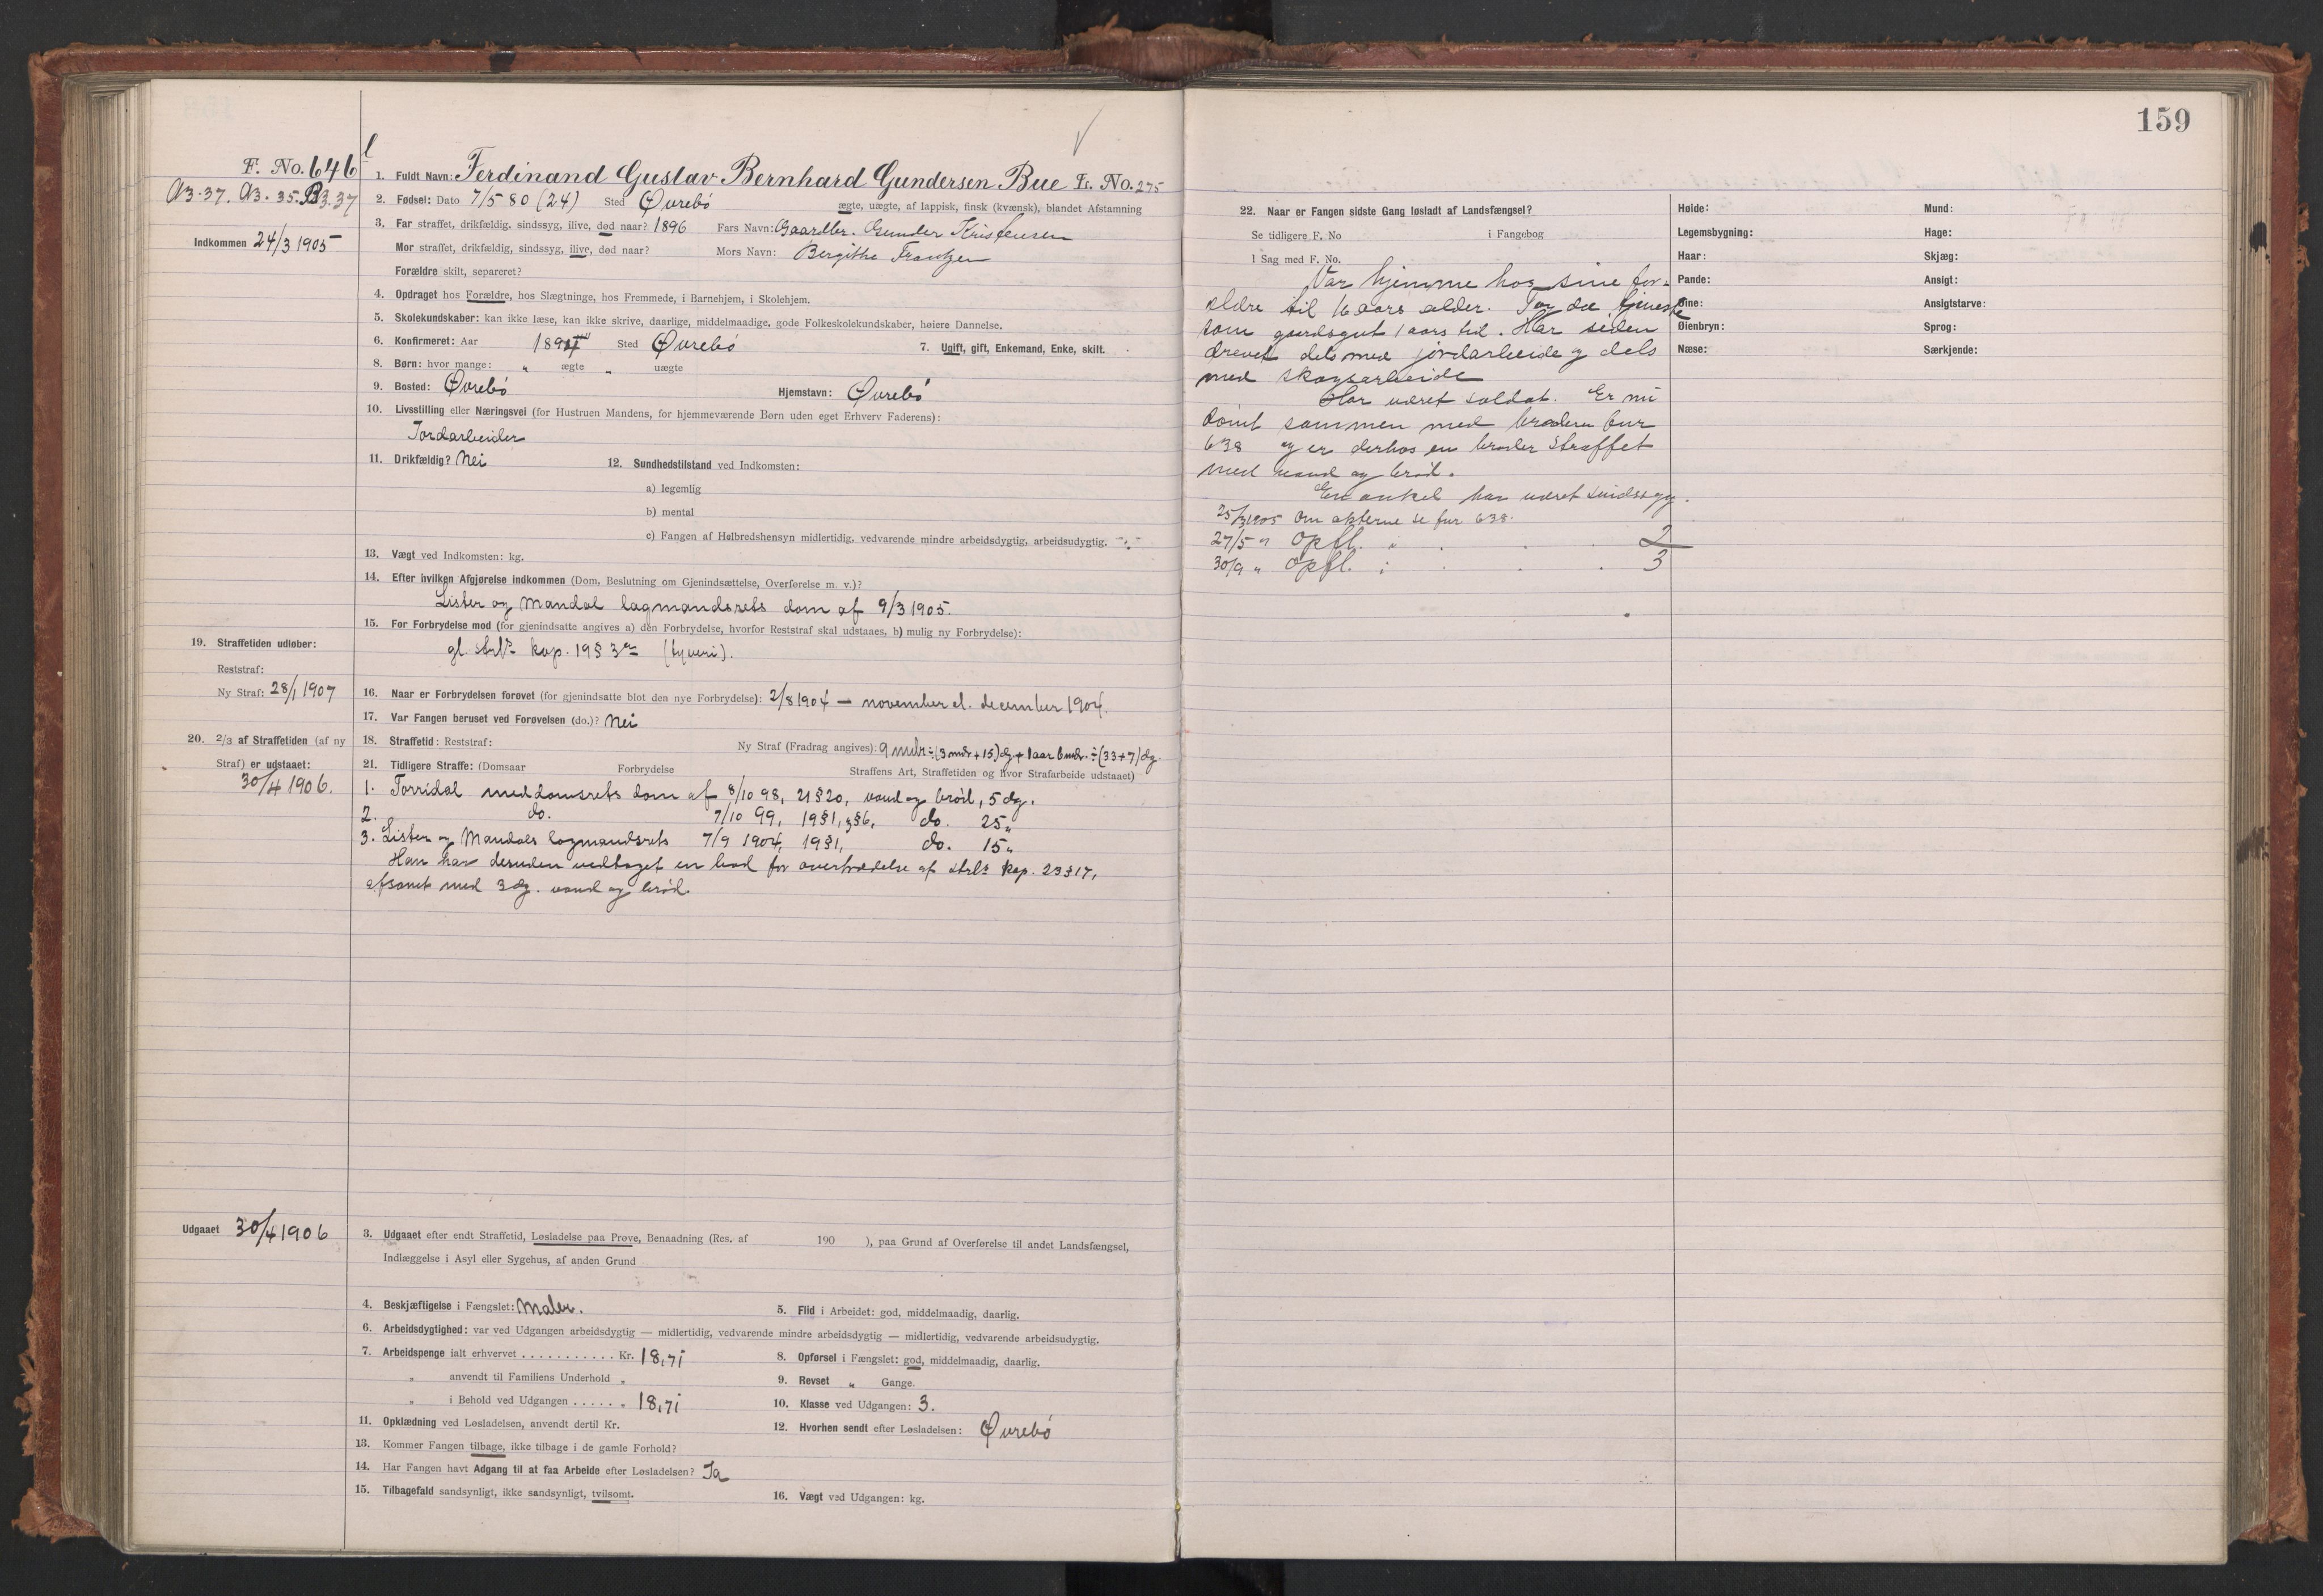 159
F. No. 646
A3.37. A3.35. B3.37
Indkommen 24/3 1905
1. Fuldt Navn: Ferdinand Gustav Bernhard Gundersen Bue Is. No. 275
2. Fødsel: Dato 7/5 80 (24) Sted Øvrebø ægte, uægte, af lappisk, finsk (kvænsk), blandet Afstamning
3. Far straffet, drikfældig, sindssyg, ilive, død naar? 1896 Fars Navn: Gaardbr. Gunder Kristensen
Mor straffet, drikfældig, sindssyg, ilive, død naar? Mors Navn: Bergithe Frantzen
Forældre skilt, separeret?
4. Opdraget hos Forældre, hos Slægtninge, hos Fremmede, i Barnehjem, i Skolehjem.
5. Skolekundskaber: kan ikke læse, kan ikke skrive, daarlige, middelmaadige, gode Folkeskolekundskaber, høiere Dannelse.
6. Konfirmeret: Aar Sted Øvrebø 7. Ugift, gift, Enkemand, Enke, skilt.
8. Børn: hvor mange: " ægte " uægte
9. Bosted: Øvrebø Hjemstavn: Øvrebø
10. Livsstilling eller Næringsvei (for Hustruen Mandens, for hjemmeværende Børn uden eget Erhverv Faderens):
Jordarbeider
11. Drikfældig? Nei 12. Sundhedstilstand ved Indkomsten:
a) legemlig
b) mental
c) Fangen af Helbredshensyn midlertidig, vedvarende mindre arbeidsdygtig, arbeidsudygtig.
13. Vægt ved Indkomsten: kg.
14. Efter hvilken Afgjørelse indkommen (Dom, Beslutning om Gjenindsættelse, Overførelse m. v.)?
Lister og Mandal lagmandsrets dom af 9/3 1905.
15. For Forbrydelse mod (for gjenindsatte angives a) den Forbrydelse, hvorfor Reststraf skal udstaaes, b) mulig ny Forbrydelse):
gl. strl. kap. 19 § 3 (tyveri).
19. Straffetiden udløber:
Reststraf:
Ny Straf: 28/1 1907
16. Naar er Forbrydelsen forøvet (for gjenindsatte blot den nye Forbrydelse): 2/8 1904 — november el. december 1904.
17. Var Fangen beruset ved Forøvelsen (do.)? Nei
20. 2/3 af Straffetiden (af ny
Straf) er udstaaet:
30/4 1906.
18. Straffetid: Reststraf: Ny Straf (Fradrag angives): 9 mdr ÷ (3 mdr + 15) dg + 1 aar 6 mdr. ÷ (33+7) dg.
21. Tidligere Straffe: (Domsaar Forbrydelse Straffens Art, Straffetiden og hvor Strafarbeide udstaaet)
1. Torridal meddomsrets dom af 8/10 98, 21 § 20, vand og brød, 5 dg.
2. do. 7/10 99, 19 § 1, § 6, do. 25 "
3. Lister og Mandals lagmandsrets 7/9 1904, 19 § 1, do. 15 "
Han har desuden vedtaget en bod for overtrædelse af strl. kap. 23 § 17,
afsonet med 3 dg. vand og brød.
Udgaaet 30/4 1906
3. Udgaaet efter endt Straffetid, Løsladelse paa Prøve, Benaadning (Res. af 190 ), paa Grund af Overførelse til andet Landsfængsel,
Indlæggelse i Asyl eller Sygehus, af anden Grund
4. Beskjæftigelse i Fængslet: Maler. 5. Flid i Arbeidet: god, middelmaadig, daarlig.
6. Arbeidsdygtighed: var ved Udgangen arbeidsdygtig — midlertidig, vedvarende mindre arbeidsdygtig — midlertidig, vedvarende arbeidsudygtig.
7. Arbeidspenge ialt erhvervet ........... Kr. 18,71 8. Opførsel i Fængslet: god, middelmaadig, daarlig.
" anvendt til Familiens Underhold " 9. Revset " Gange.
" i Behold ved Udgangen ...... " 18,71 10. Klasse ved Udgangen: 3.
11. Opklædning ved Løsladelsen, anvendt dertil Kr. 12. Hvorhen sendt efter Løsladelsen: Øvrebø
13. Kommer Fangen tilbage, ikke tilbage i de gamle Forhold?
14. Har Fangen havt Adgang til at faa Arbeide efter Løsladelsen? Ja
15. Tilbagefald sandsynligt, ikke sandsynligt, tvilsomt. 16. Vægt ved Udgangen: kg.
22. Naar er Fangen sidste Gang løsladt af Landsfængsel?
Se tidligere F. No i Fangebog
I Sag med F. No.
Var hjemme hos sine for-
ældre til 16 aars alder. Tog da tjeneste
som gaardsgut 1 aars tid. Har siden
drevet dels med jordarbeide og dels
med skogsarbeide
Har været soldat. Er nu
dømt sammen med broderen fnr
638 og er derhos en broder straffet
med vand og brød.
En onkel har været sindssyg.
25/3 1905 Om akterne se fnr 638.
27/5 " Opfl. i . . . 2
30/9 " Opfl. i . . . 3
Høide: Mund:
Legemsbygning: Hage:
Haar: Skjæg:
Pande: Ansigt:
Øine: Ansigtsfarve:
Øienbryn: Sprog:
Næse: Særkjende: